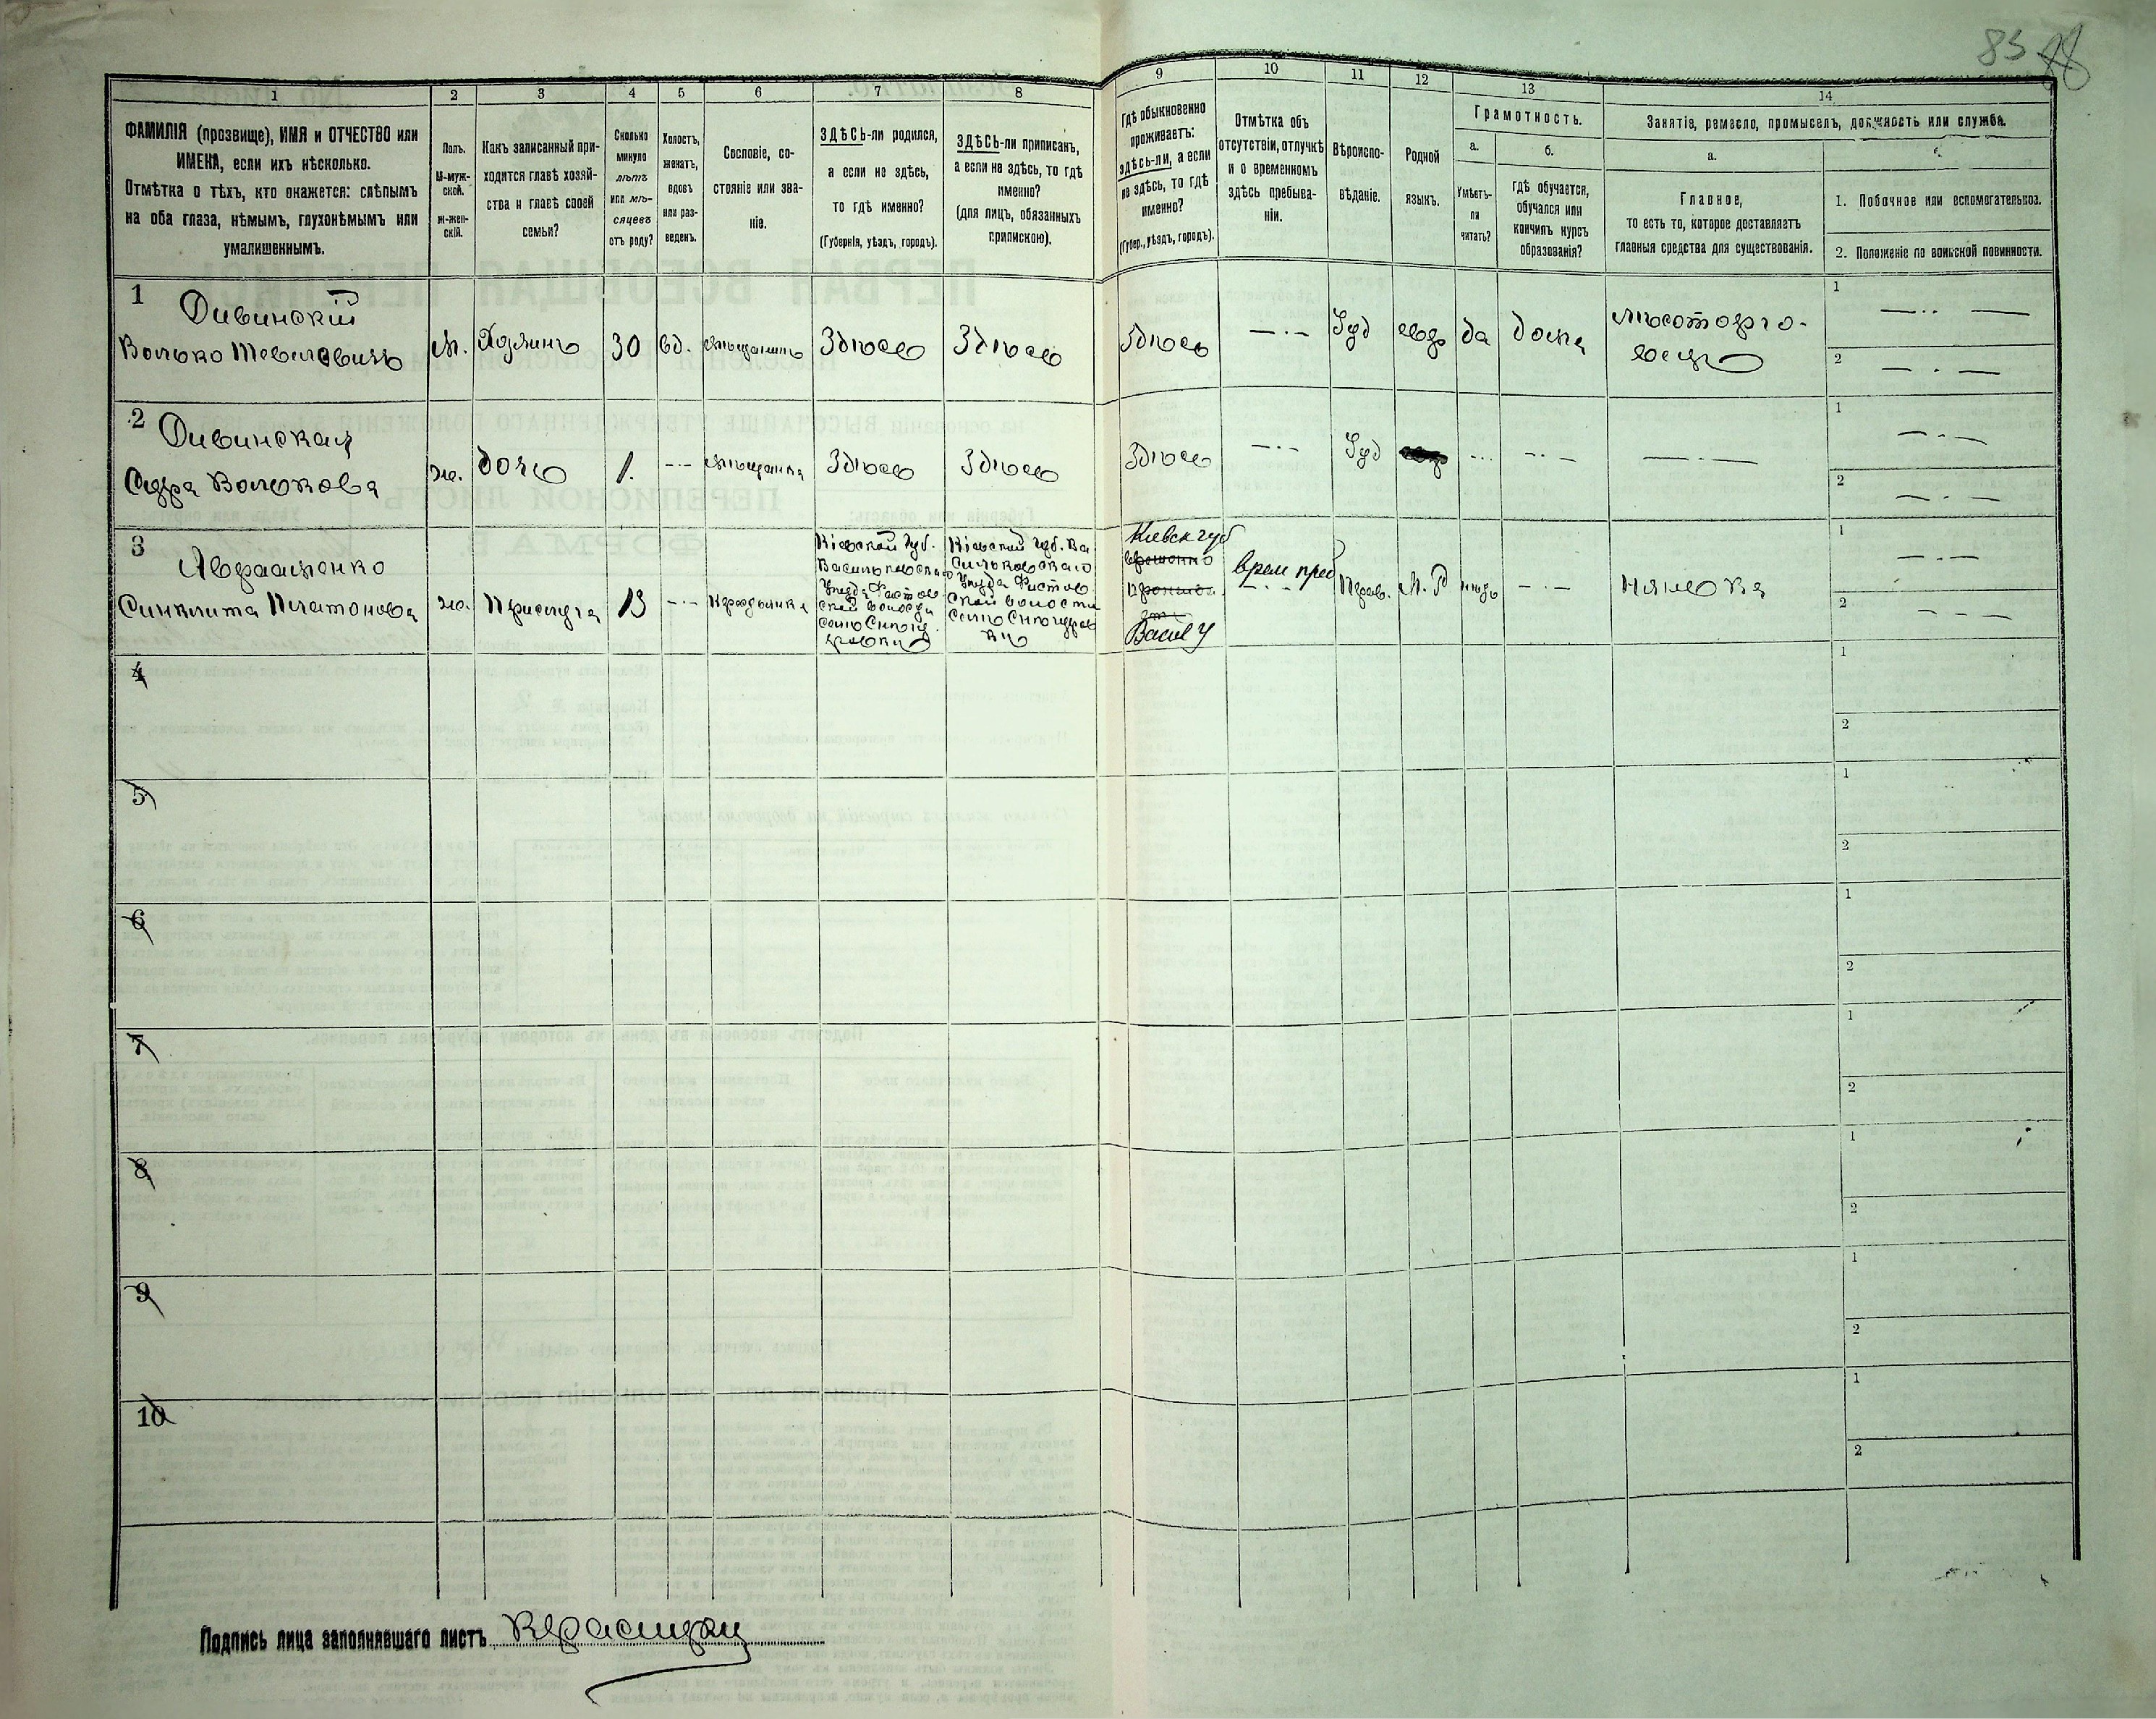 83 88
1 2 3 4 5 6 7 8 9 10 11 12 13 14
ФАМИЛІЯ (прозвище), ИМЯ и ОТЧЕСТВО или
ИМЕНА, если ихъ нѣсколько.
Отмѣтка о тѣхъ, кто окажется: слѣпымъ
на оба глаза, нѣмымъ, глухонѣмымъ или
умалишеннымъ.
Полъ.
М-муж-
ской.
Ж-жен-
скій.
Какъ записанный при-
ходится главѣ хозяй-
ства и главѣ своей
семьи?
Сколько
минуло
лѣтъ
или мѣ-
сяцевъ
отъ роду?
Холостъ,
женатъ,
вдовъ
или раз-
веденъ.
Сословіе, со-
стояніе или зва-
ніе.
ЗДѢСЬ-ли родился,
а если не здѣсь,
то гдѣ именно?
(Губернія, уѣздъ, городъ).
ЗДѢСЬ-ли приписанъ,
а если не здѣсь, то гдѣ
именно?
(для лицъ, обязанныхъ
припискою).
Гдѣ обыкновенно
проживаетъ:
здѣсь-ли, а если
не здѣсь, то гдѣ
именно?
(Губер., уѣздъ, городъ).
Отмѣтка объ
отсутствіи, отлучкѣ
и о временномъ
здѣсь пребыва-
ніи.
Вѣроиспо-
вѣданіе.
Родной
языкъ.
Грамотность.
а.
Умѣетъ-
ли
читать?
б.
гдѣ обучается,
обучался или
кончилъ курсъ
образованія?
Занятіе, ремесло, промыселъ, должность или служба.
а.
Главное,
то есть то, которое доставляетъ
главныя средства для существованія.
б.
1. Побочное или вспомогательное.
2. Положеніе по воинской повинности.
1 Дивинскій
Волько Тевелевичъ
М. Хозяинъ 30 вд. мѣщанинъ Здѣсь Здѣсь Здѣсь — · — Іуд евр да дома
мясоторго-
вецъ
1 — · · —
2 — · —
2 Дивинская
Сура Волькова
ж. дочь 1. — · — мѣщанка Здѣсь Здѣсь Здѣсь — · — Іуд — · — — · — — · —
1 — · —
2 — · —
3 Авраменко
Синклита Платонова
ж. Прислуга 13 — · — крестьянка
Кіевской Губ.
Васильковскаго
Уѣзда Фастов
ской волости
село Снѣгу
ровки
Кіевской Губ. Ва
сильковскаго
Уѣзда Фастов
ской волости
село Снѣгуров
ки
Киевск губ
Васил У
врем преб
Прав. М. Р
— · —
нянька
1 — · —
2 — · —
4 1
2
5 1
2
6 1
2
7 1
2
8 1
2
9 1
2
10 1
2
Подпись лица заполнявшаго листъ